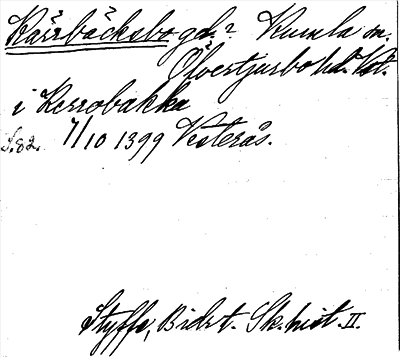 Kärrbäcksbo gd.? Kumla sn.
Övertjurbo hd. Vstm.
i Kerrobakka
S.82. 7/10 1399 Vesterås.
Styffe, Bidr t. Sk. hist. II.